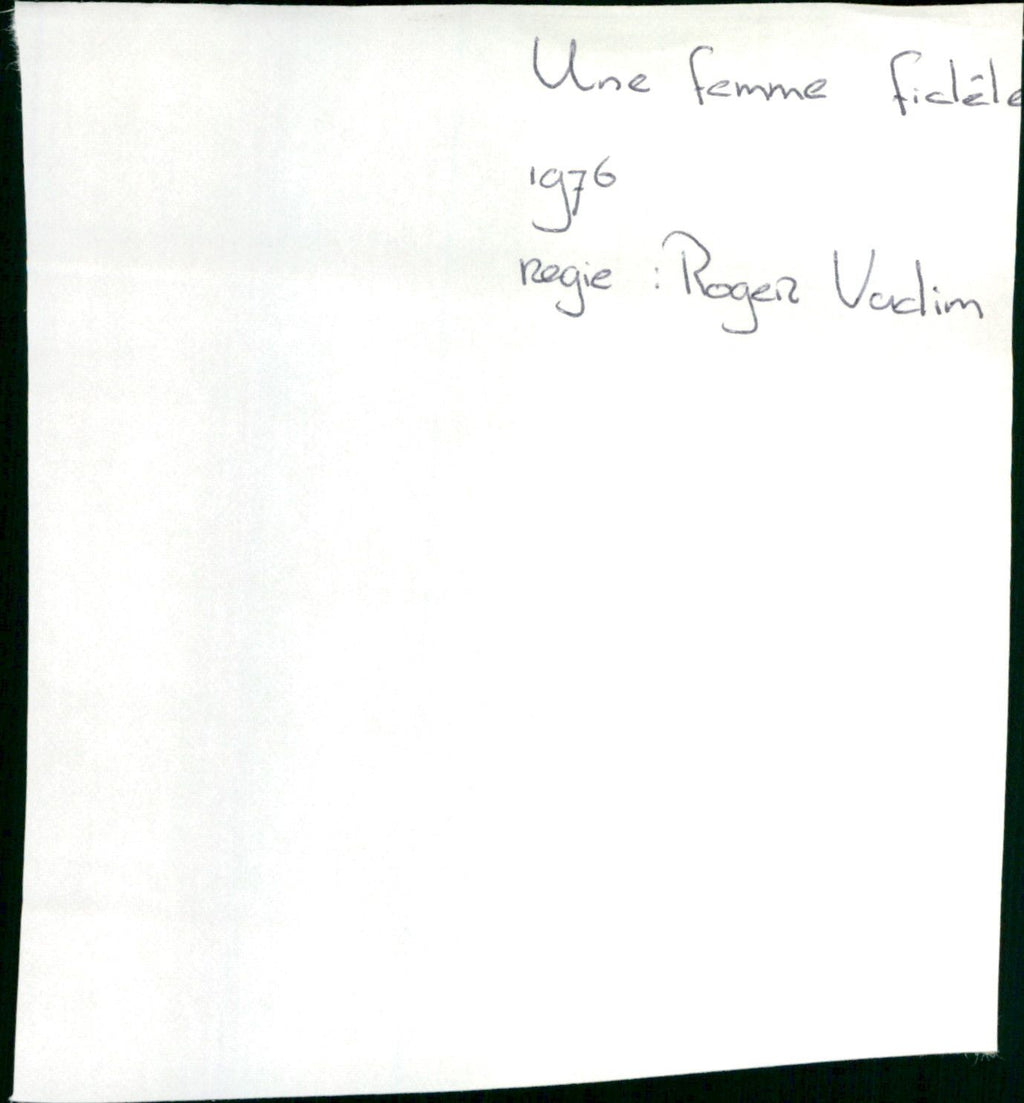 Une femme fidèle
1976
Regie : Roger Vadim